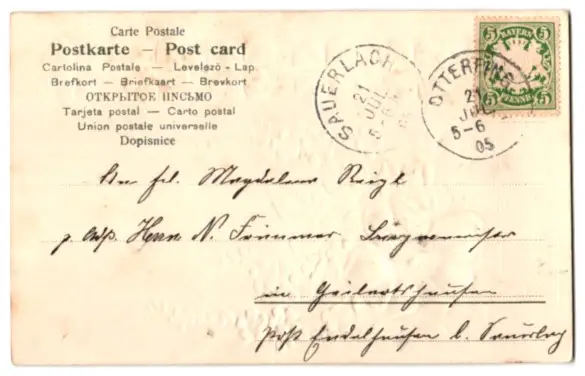 Carte Postale
Postkarte — Post card
Cartolina Postale — Levelező - Lap.
Brefkort — Briefkaart — Brevkort
ОТКРЫТОЕ ПИСЬМО
Tarjeta postal — Carto postal
Union postale universelle
Dopisnice
SAUERLACH
21
JUL
05
OTTERFING
21
JUL
5-6
05
5 BAYERN 5
5 PFENNIG 5
An frl. Magdalena
p. Adß. Herrn N. Trimmer Bürgermeister
in
Post Endelhausen b. Sauerlag